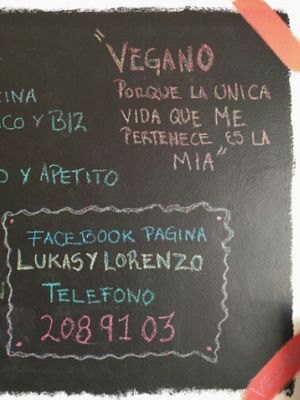 "VEGANO
PORQUE LA UNICA
VIDA QUE ME
PERTENECE ES LA
MIA"
INA
CO Y B12
O Y APETITO
FACEBOOK PAGINA
LUKAS Y LORENZO
TELEFONO
2089103